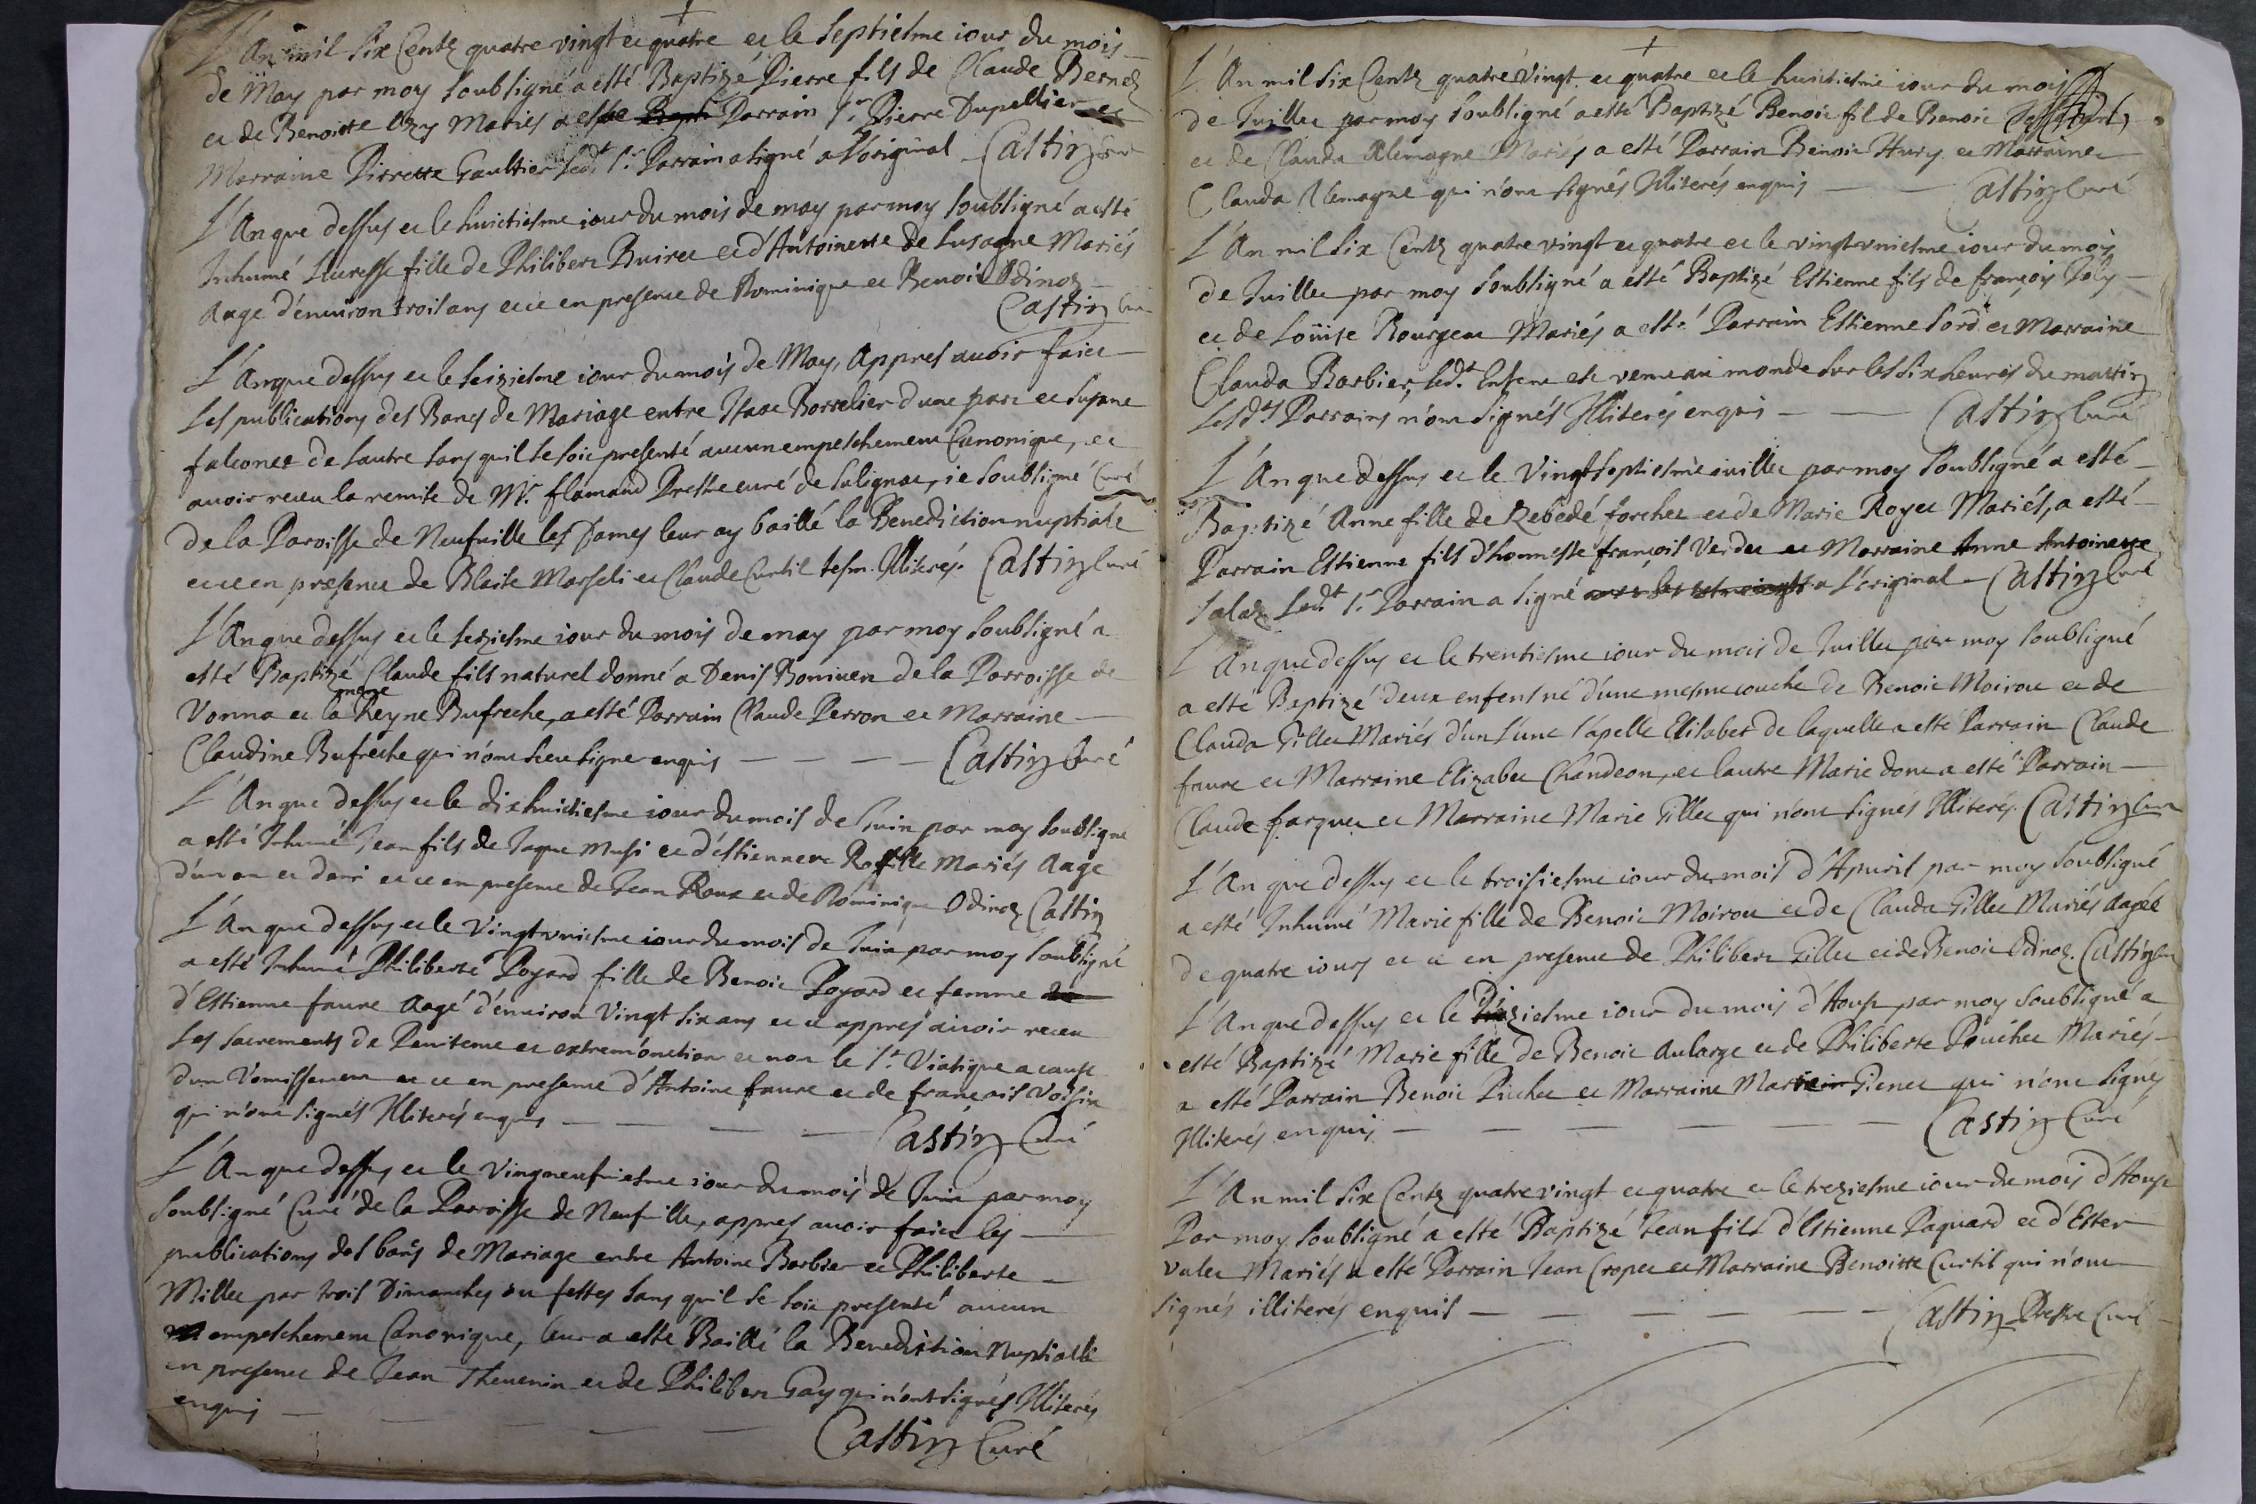 L'An mil six Centz quatre vingt et quatre et le septiesme iour du mois
de May par moy soubsigné a esté Baptizé Pierre fils de Claude Bernoz
et de Benoitte Mariés a esté Parrain Sr Pierre Dupellier et
Marraine Pierrette Gaultier led.t Sr Parrain a signé a l'original Castin Curé
L'An que dessus et le huictiesme iour du mois de may par moy soubsigné a esté
Inhumé Lucresse fille de Philibert Buiret et d'Antoinette de Lusagne Mariés
Aage d'enuiron trois ans et ce en presence de Dominique et Benoit Odinoz
Castin Curé
L'An que dessus et le seiziesme iour du mois de May, Appres auoir faict
Les publications des Bancs de Mariage entre Isaac Borrelier d'une part et Susane
falconet de l'autre sans quil se soit presenté aucun empeschement Canonique, et
auoir receu la remise de Mr. flamand Prestre curé de Solignac, ie soubsigné Curé
de la Paroisse de Neufuille les Dames leur ay baillé la Benediction nuptiale
et ce en presence de Blaise Morseli et Claude Curtil tesm. Illiterés. Castin Curé
L'An que dessus et le seziesme iour du mois de may par moy soubsigné a
esté Baptizé Claude fils naturel donné a Denis Boniuen de la Parroisse de
mere
Vonna et la Reyne Bufreche, a esté Parrain Claude Perron et Marraine
Claudine Bufreche qui n'ont sceu signer enquis Castin Curé
L'An que dessus et le dixhuictiesme iour du mois de Iuin par moy soubsigné
a esté Inhumé Jean fils de Iaque Musi et d'estiennete Mariés Aage
d'un an et demi et ce en presence de Jean Roux et de Dominique Odinoz Castin
L'An que dessus et le Vingtvniesme iour du mois de Iuin par moy soubsigné
a esté Inhumé Philiberte Poyard fille de Benoit Poyard et femme
d'Estienne faure Aagé d'enuiron Vingt six ans et ce appres auoir receu
Les sacrements de Penitence et extremonction et non le St. Viatique a cause
dun Vomissement et ce en presence d'Antoine faure et de francois Voisin
qui n'ont signés Illiterés enquis Castin Curé
L'An que dessus et le Vingtneufuiesme iour du mois de Iuin par moy
soubsigné Curé de la Parroisse de Neufuille, appres auoir faict les
publications des bans de Mariage entre Antoine Barbier et Philiberte
Millet par trois Dimanches ou festes sans qu'il se soit presenté aucun
empeschement Canonique, leur a esté Baillé la Benediction Nuptialle
en presence de Jean Theuenin et de Philibert Gay qui n'ont signés Illiterés
enquis
Castin Curé
L'An mil six Centz quatre vingt et quatre et le huictiesme iour du mois
de Iuillet par moy soubsigné a esté Baptizé Benoit fil de Benoit
et de Clauda Alemagne Mariés a esté Parrain Benoit Hury et Marraine
Clauda Alemagne qui n'ont signés Illiterés enquis Castin Curé
L'An mil six Centz quatre vingt et quatre et le vingtvniesme iour du mois
de Iuillet par moy soubsigné a esté Baptizé Estienne fils de françois Joly
et de Loüise Bourgeat Mariés a esté Parrain Estienne Sord et Marraine
Clauda Barbier, led.t Enfent est venu au monde sur les six heures du mattin
Lesd.ts Parrains n'ont signés Illiterés enquis Castin Curé
L'An que dessus et le Vingtseptiesme iuillet par moy soubsigné a esté
Baptizé Anne fille de Zebedé forchet et de Marie Royet Mariés, a esté
Parrain Estienne fils d'honneste françois Verdet et Marraine Anne Antoinette
Salaz Led.t Sr Parrain a signé a L'original Castin Curé
L'An que dessus et le trentiesme iour du mois de Iuillet par moy soubsigné
a esté Baptizé deux enfens né d'une mesme couche de Benoit Moirou et de
Clauda Gillet Mariés d'un l'une s'apelle Elisabet de laquelle a esté Parrain Claude
faure et Marraine Elizabet Chandeon, et lautre Marie dont a esté Parrain
Claude farguet et Marraine Marie Gillet qui n'ont signés Illiterés. Castin Curé
L'An que dessus et le troisiesme iour du mois d'Apuril par moy soubsigné
a esté Inhumé Marie fille de Benoit Moirou et de Clauda Gillet Mariés Aagée
de quatre iours et ce en presence de Philibert Gillet et de Benoit Odinoz. Castin Curé
L'An que dessus et le Diziesme iour du mois d'Aoust par moy soubsigné a
esté Baptizé Marie fille de Benoit Aularge et de Philiberte Pouchet Mariés
a esté Parrain Benoit Pichet et Marraine Gienet qui n'ont signés
Illiterés enquis Castin Curé
L'An mil six Centz quatre vingt et quatre et le treziesme iour du mois d'Aoust
Par moy soubsigné a esté Baptizé Jean fils d'Estienne Paquard et d'Ester
vulet Mariés a esté Parrain Jean Cropet et Marraine Benoitte Curtil qui n'ont
signés illiterés enquis Castin Prestre Curé